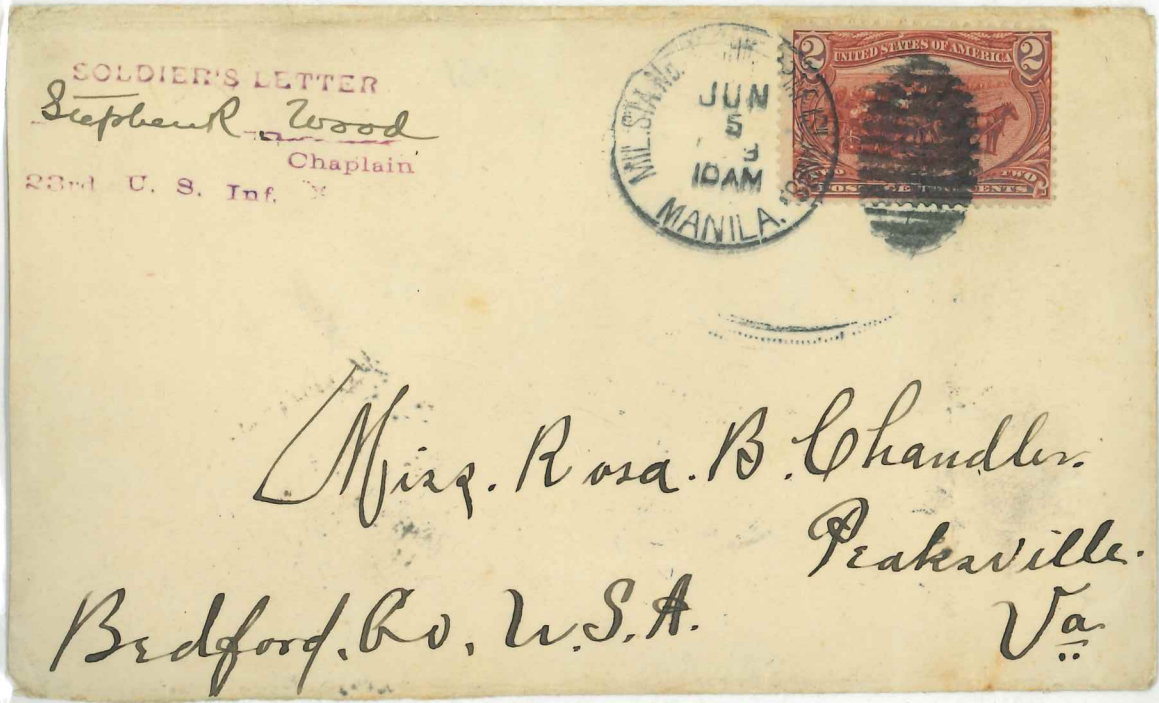 SOLDIER'S LETTER
Stephen R. Wood
Chaplain
23rd U. S. Inf.
MIL. STA. No.
JUN
5
3
10 AM
MANILA.
2 UNITED STATES OF AMERICA 2
TWO
POSTAGE CENTS
Miss. Rosa. B. Chandler.
Peaksville.
Bedford. Co. U.S.A.
Va